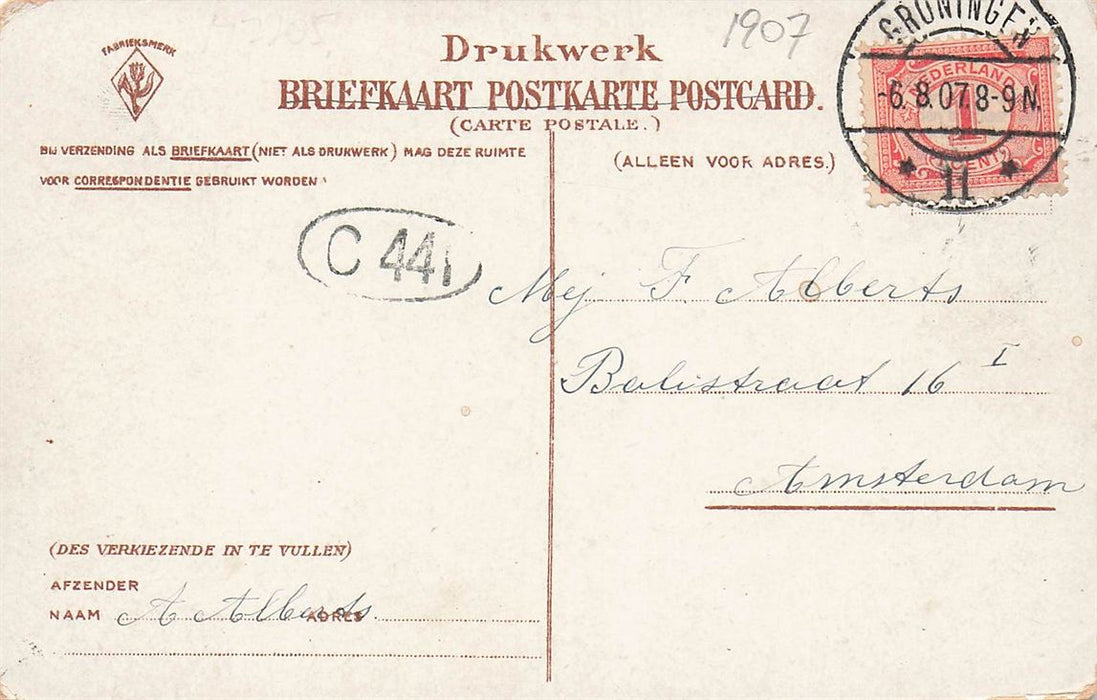 1907
FABRIEKSMERK
Drukwerk
BRIEFKAART POSTKARTE POSTCARD.
(CARTE POSTALE.)
BIJ VERZENDING ALS BRIEFKAART (NIET ALS DRUKWERK) MAG DEZE RUIMTE
VOOR CORRESPONDENTIE GEBRUIKT WORDEN
(ALLEEN VOOR ADRES.)
GRONINGEN
-6.8.07.8-9N.
11
NEDERLAND
1
CENT
C 441
Mej F. Alberts
Balistraat 16 I
Amsterdam
(DES VERKIEZENDE IN TE VULLEN)
AFZENDER
NAAM A Alberts ADRES